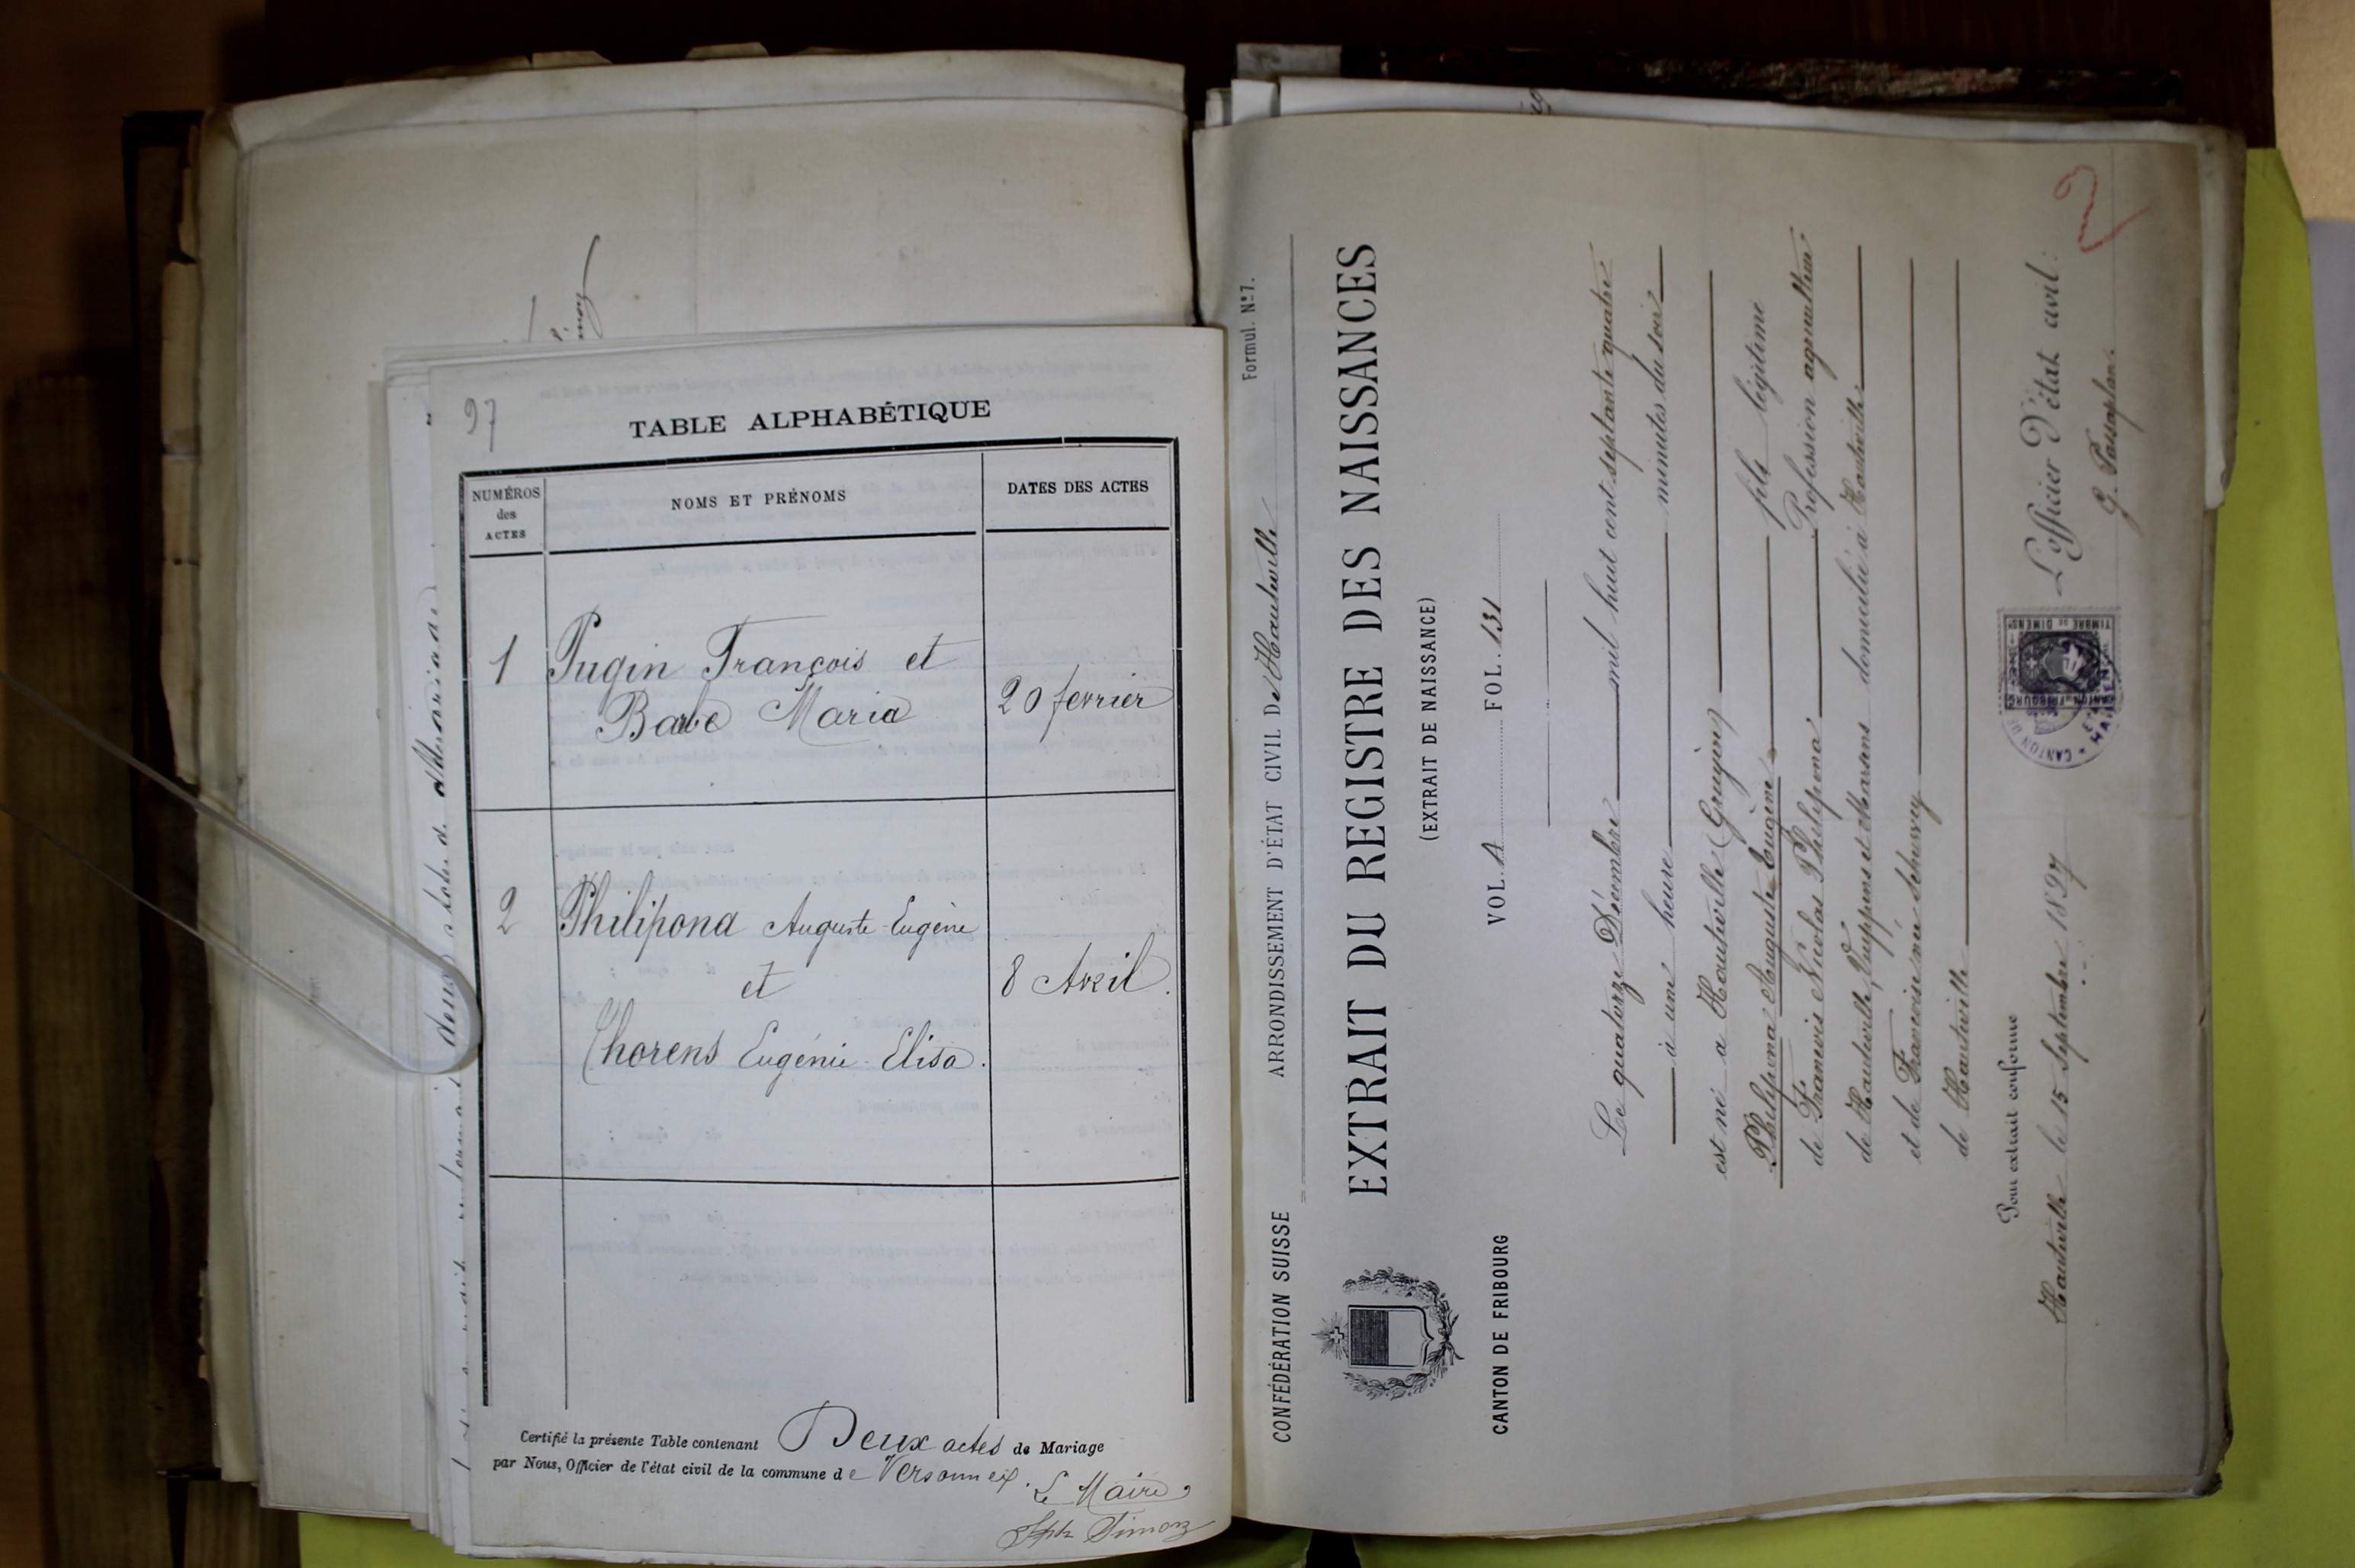 97
TABLE ALPHABÉTIQUE
NUMÉROS
des
ACTES
NOMS ET PRÉNOMS
DATES DES ACTES
1
Pugin François et
Barbe Maria
20 fevrier
2
Philipona Auguste-Eugène
et
Chorens Eugénie-Elisa.
8 Avril.
Certifié la présente Table contenant Deux actes de Mariage
par Nous, Officier de l'état civil de la commune de Versonnex.
Le Maire,
Jph Simon
Formul. Nº 7.
CONFÉDÉRATION SUISSE
ARRONDISSEMENT D'ÉTAT CIVIL D'Hauteville
EXTRAIT DU REGISTRE DES NAISSANCES
(EXTRAIT DE NAISSANCE)
CANTON DE FRIBOURG
VOL. A FOL. 131
Le quatorze Décembre mil huit cent septante quatre
à une heure minutes du soir
est né à Hauteville (Gruyère)
Philipona Auguste Eugène fils légitime
de François Nicolas Philipona Profession agriculteur
de Hauteville, Vuippens et Marsens domicilié à Hauteville
et de Françoise née Schouwey
de Hauteville
Pour extrait conforme
Hauteville le 15 Septembre 1897
L'officier d'état civil:
G. Passaplan.
TIMBRE DE DIMENS
CANTON FRIBOURG